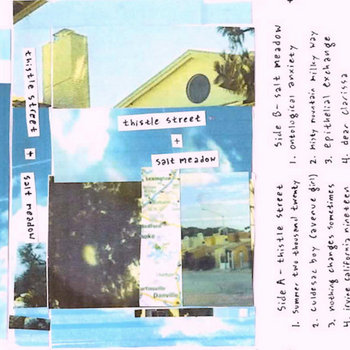 thistle street + salt meadow
thistle street
+
salt meadow
Lexington
Danville
Side A - thistle street
1. Summer two thousand twenty
2. Culdesac boy (avenue girl)
3. nothing changes sometimes
4. irvine california nineteen
Side B - salt meadow
1. ontological anxiety
2. Misty mountain milky way
3. epithelial exchange
4. dear clarissa